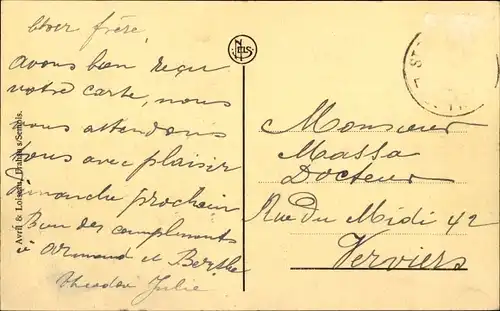 Cher frère,
avons bien reçu
votre carte, nous
vous attendons
tous avec plaisir
Dimanche prochain
Bien des compliments
à Armand et Berthe
Théodor Julie
NELS
Avril & Loison, Frahan s/Semois.
Monsieur
Massa
Docteur
Rue Du Midi 42
Verviers